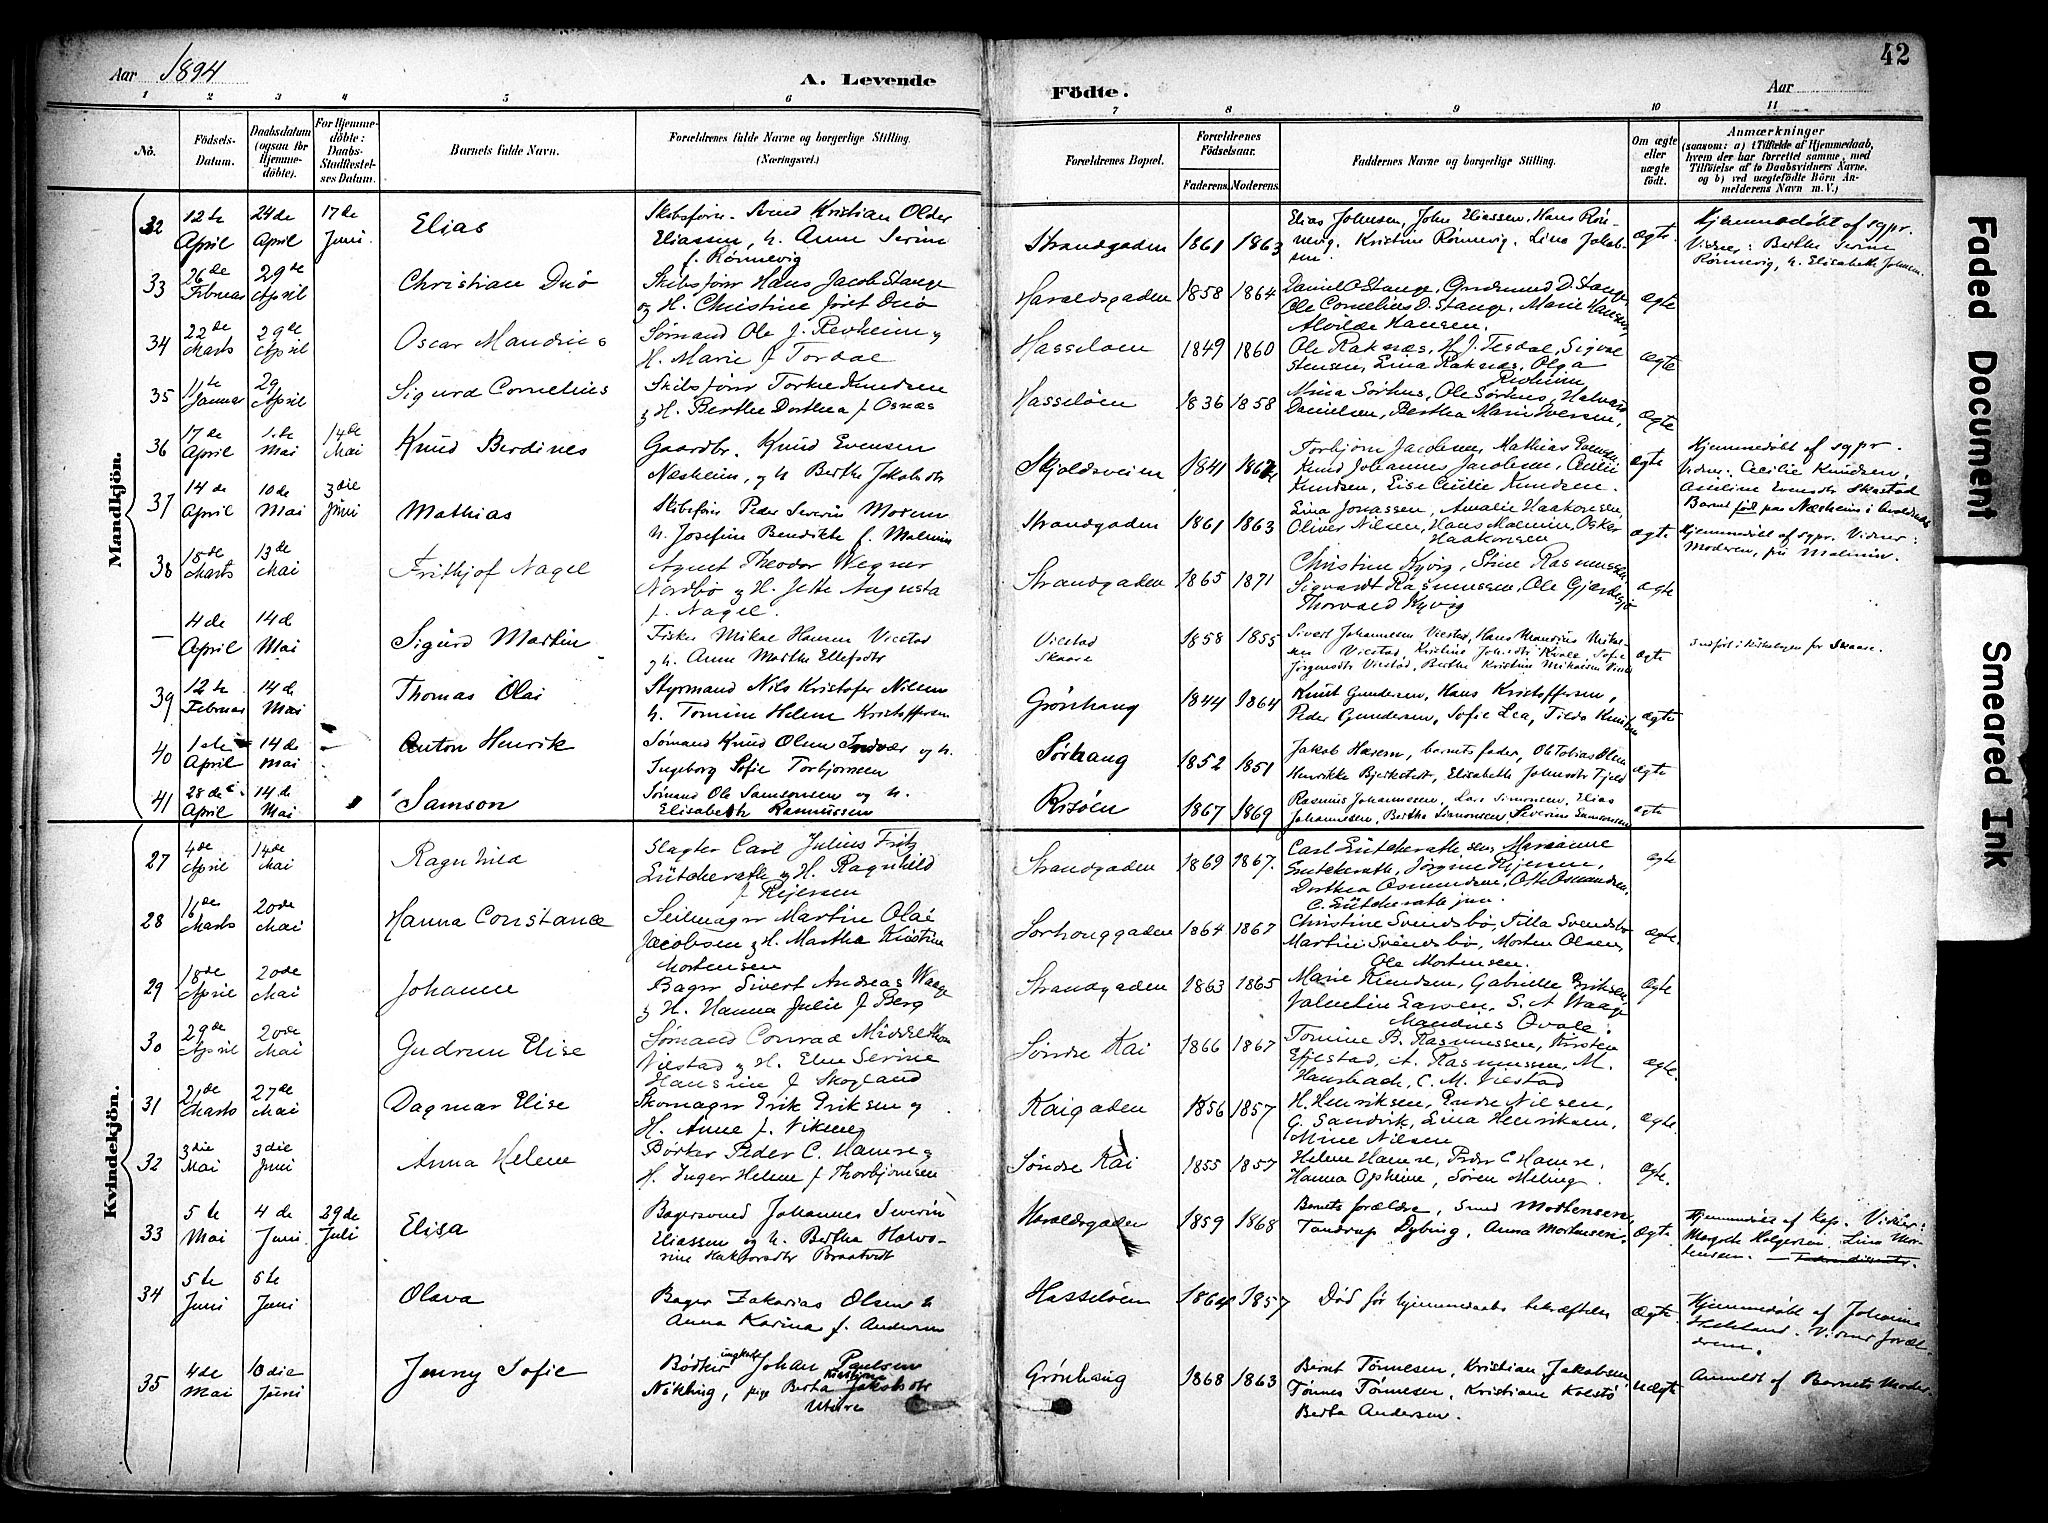 Aar 1894
A. Levende
Födte.
Aar
42
1 2 3 4 5 6 7 8 9 10 11
No.
Födsels-Datum.
Daabsdatum (ogsaa for Hjemmedöbte).
For Hjemmedöbte: Daabs-Stadfæstelses Datum.
Barnets fulde Navn.
Forældrenes fulde Navne og borgerlige Stilling. (Næringsvei.)
Forældrenes Bopæl.
Forældrenes Födselsaar.
Faderens. Moderens.
Faddernes Navne og borgerlige Stilling.
Om ægte eller uægte födt.
Anmærkninger
(saasom: a) i Tilfælde af Hjemmedaab, hvem der har forrettet samme, med Tilföielse af to Daabsvidners Navne, og b) ved uægtefödte Börn Anmelderens Navn m. V.)
Mandkjön.
32 12te April 24de April 17de Juni. Elias
Eliassen, h. Anne Serine
f. Rönnevig
Strandgaden 1861 1863
Elias Johnsen, John Eliassen, Hans Rön-
nevig, Kristine Rønnevig, Lina Jakob-
sen. ægte.
Hjemmedöbt af
Vidner: Berthe Serine
Rönnevig, h. Elisabeth Johnsen.
33 26de Februar 29de April Christian Duö
Skibsförer Hans Jacob Stange
og H. Christine födt Duö
Haraldsgaden 1858 1864
Daniel O Stange, Gudmund D. Stange,
Ole Cornelius D. Stange, Marie Hansen,
Alvilde Hansen. ægte
34 22de Marts 29de April Oscar Mandius
Sömand Ole J. Revheim og
H. Marie f Tordal
Hasselöen 1849 1860
Ole Raknæs, H. J. Tesdal, Sigval
Stensen, Lina Raknæs, Olga
Revheim ægte
35 11te Januar 29 April Sigurd Cornelius
Skibsförer Torkel Knudsen
og H. Berthe Dorthea f Osnæs
Hasselöen 1836 1858
Mina Sörhus, Ole Sörhus, Halvard
Danielsen, Bertha Marie Iversen, ægte
36 17de April 1.de Mai 14de Mai Knud Berdines
Gaardbr. Knud Evensen
Næsheim, og h Berthe Jakobsdtr
Skjoldsveien 1841
Torbjörn Jacobsen, Mathias
Knud Johannes Jacobsen,
Knudsen, Lise Cecilie Knudsen. ægte
Hjemmedöbt af
Vidner: Cecilie Knudsen,
Evensdtr Skastad
Barnet født paa Næsheim i
37 14de April 10de Mai 3die Juni Mathias
Skibsförer Peder Severin
h. Josefine Bendikte f. Malmin
Strandgaden 1861 1863
Lina Jonassen, Amalie Haakonsen,
Oliver Nilsen, Hans Malmin, Oskar
Haakonsen ægte
Vidner:
Moderen, Malmin.
38 18de Marts 13de Mai Frithjof Nagel
Agent Theodor Wegner
Nordbö og H. Jette Augusta
f. Nagel.
Strandgaden 1865 1871
Christine Kyvig, Stine Rasmussen
Sigvardt Rasmussen, Ole
Thorvald Kyvig ægte
— 4de April 14de Mai Sigurd Martin
Fisker Mikal Hansen Viestad
og h. Anne Marthe Ellefsdtr
Viestad
Skaare 1858 1855
Sivert Johannesen Viestad, Hans Mandius Mikal-
sen Viestad, Kristine
Jörgensdtr Viestad, Berthe Kristine Mikalsen ægte
for Skaare.
39 12te Februar 14de Mai Thomas Olai
Styrmand Nils Kristofer Nilsen
h. Tomine Helene Kristoffersen
Grönhaug 1844 1864
Knut Gundersen, Hans Kristoffersen,
Peder Gundersen, Sofie Lea, Tilda Knutsen ægte
40 1ste April 14de Mai Anton Henrik
Sömand Knud Olsen og h.
Ingeborg Sofie Torbjörnsen
Sörhaug 1852 1851
Jakob barnets fader, Ole Tobias Olsen
Henrikke Bjerkstedt, Elisabeth ægte
41 28de April 14de Mai Samson
Sömand Ole Samsonsen og h.
Elisabeth Rasmussen
Risöen 1867 1869
Rasmus Johannesen, Lars Simonsen, Elias
Johannesen, Bertha Simonsen, Severine ægte
Kvindekjön.
27 4de April 14de Mai Ragnhild
Slagter Carl Julius Fritz
Lütcherath og H. Ragnhild
f Rejersen
Strandgaden 1869 1867.
Carl Lütcherath sen, Marianne
Lütcherath, Jörgine Rejersen,
Dorthea Osmundsen, Otto Osmundsen,
C. Lütcherath jun. ægte
28 16de Marts 20de Mai Hanna Constance
Seilmager Martin Olai
Jacobsen og H. Martha Kristine
Mortensen
Sörhauggaden 1864 1867
Christine Svendsbö, Tilla Svendsbö
Martin Svendsbö, Morten Olsen,
Ole Mortensen. ægte.
29 18de April 20de Mai Johanne
Bager Sivert Andreas Waage
og H. Hanna Julie f Berg
Strandgaden 1863 1865
Marie Knudsen, Gabrielle Eriksen,
Valentin Larsen, S. A. Waage
Mandius Qvale. ægte
30 29de April 20de Mai Gudrun Elise
Sömand Conrad Middelthon
Viestad og H. Elen Serine
Hansine f Skogland
Söndre Kai 1866 1867
Tomine B. Rasmussen, Kirsten
A. Rasmussen, M.
C. M. Viestad ægte.
31 21de Marts 27de Mai Dagmar Elise
Skomager Erik Eriksen og
H. Anne f. Vikene
Kaigaden 1856 1857
H. Henriksen, Endre Nilsen,
G. Sandvik, Lina Henriksen,
Mine Nilsen ægte.
32 3die Mai 3die Juni Anna Helene
Bödker Peder C. Hamre og
H. Inger Helene f Thorbjörnsen
Söndre Kai 1855 1857
Helene Hamre, Peder C Hamre,
Hanna Opheim, Sören Meling. ægte.
33 5te Mai 4de Juni 29de Juli Elisa
Bagersvend Johannes Severin
Eliassen og h. Bertha Halvo-
rine Braatvedt
Haraldsgaden 1859 1868
Barnets forældre, Mortensen,
Tandrup Dybing, Anna Mortensen. ægte.
Hjemmedöbt af Kap. Vidner:
Magda Holgersen. Lina Mor-
tensen.
34 5te Juni 6te Juni Olava
Bager Zakarias Olsen h
Anna Karina f. Andersen
Hasselöen 1864 1857
Död før hjemmedaabs bekræftelse ægte.
Hjemmedöbt af Johanna
Vidner foræl-
drene.
35 4de Mai 10die Juni Jenny Sofie
Bödker ungkarl Johan Paulsen
Nökling, pige Berta Kristine Jakobsdtr
Utvere
Grönhaug 1868 1863
Bernt Tönnesen, Kristian Jakobsen,
Tönnes Tönnesen, Kristiane Kolstö
Berta Andersen. uægte
Anmeldt af Barnets Moder.
Faded Document
Smeared Ink